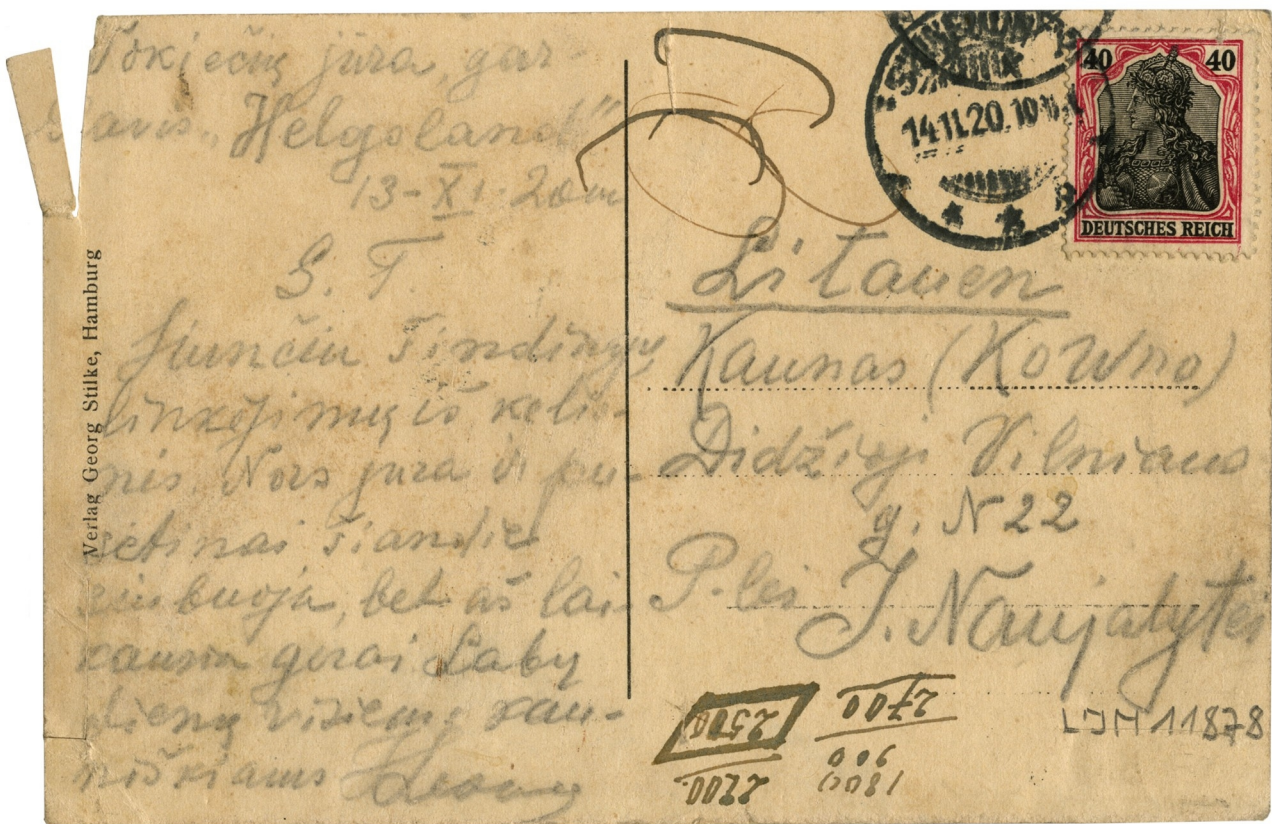 Vokiečių jūra, gar-
"Helgoland"
13-XI-20 m
G. T.
Siunčiu širdingų
linkėjimų iš kelio-
nės. Nors jūra ir pu-
sėtinai šiandie
siubuoja, bet aš lai-
kausiu gerai Labų
dienų visiems kau-
niškiams
Verlag Georg Stilke, Hamburg
14.11.20.10
40 40
DEUTSCHES REICH
Litauen
Kaunas (Kowno)
Didžioji Vilniaus
g. N 22
P-lei J. Naujalytei
2500
2200
2700
900
1800
LJM 11878